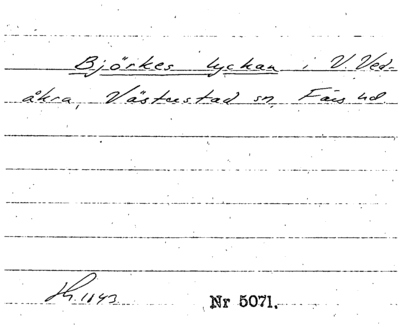 Björkes lyckan i V. Ved-
åkra, Västrstad sn, Färs hd
Nr 5071.